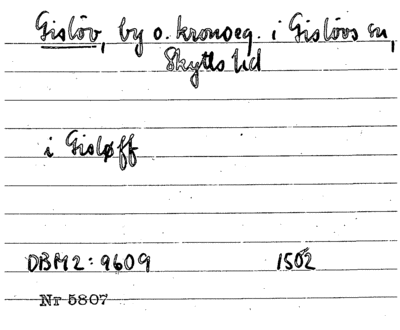 Gislöv, by o. kronoeg. i Gislövs sn,
Skytts hd
i Gisløff
DBM2: 9609 1502
Nr 5807